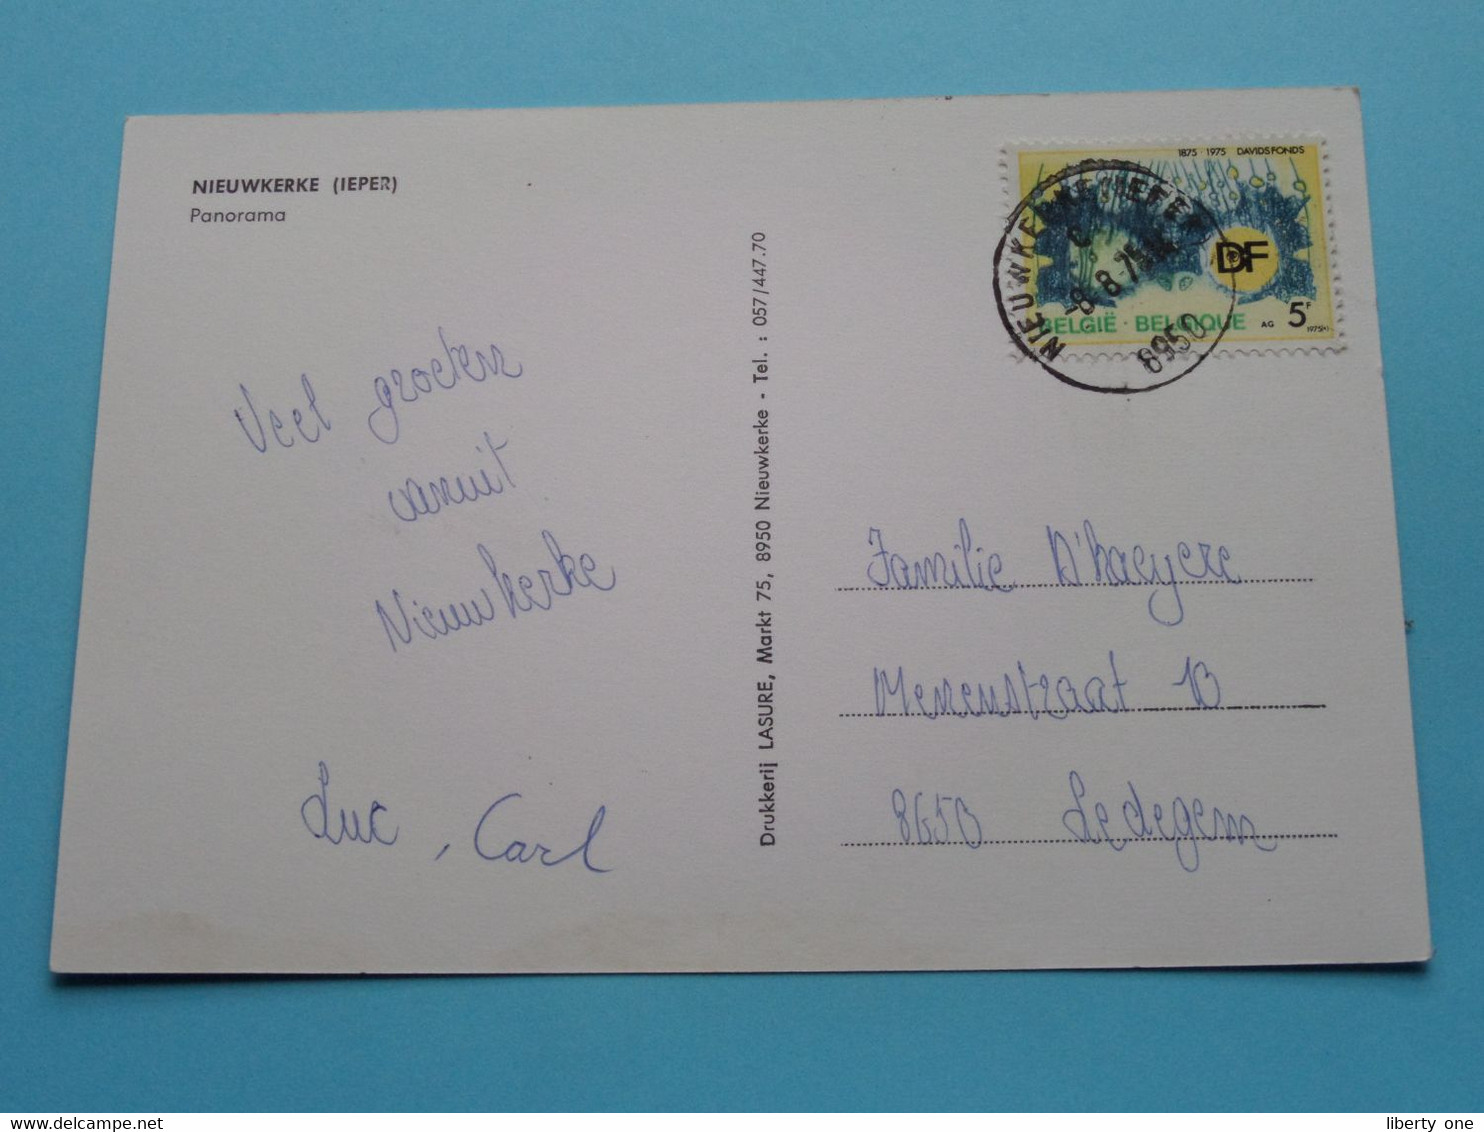 NIEUWKERKE (IEPER)
Panorama
Veel groeten
vanuit
Nieuwkerke
Luc, Carl
Drukkerij LASURE, Markt 75, 8950 Nieuwkerke - Tel. : 057/447.70
1875 · 1975 DAVIDSFONDS
DF
BELGIË · BELGIQUE
AG 5F
NIEUWKERKE (IEPER)
-8.8.75
8950
Familie D'haeyere
Menenstraat 10
8650 Ledegem
liberty one